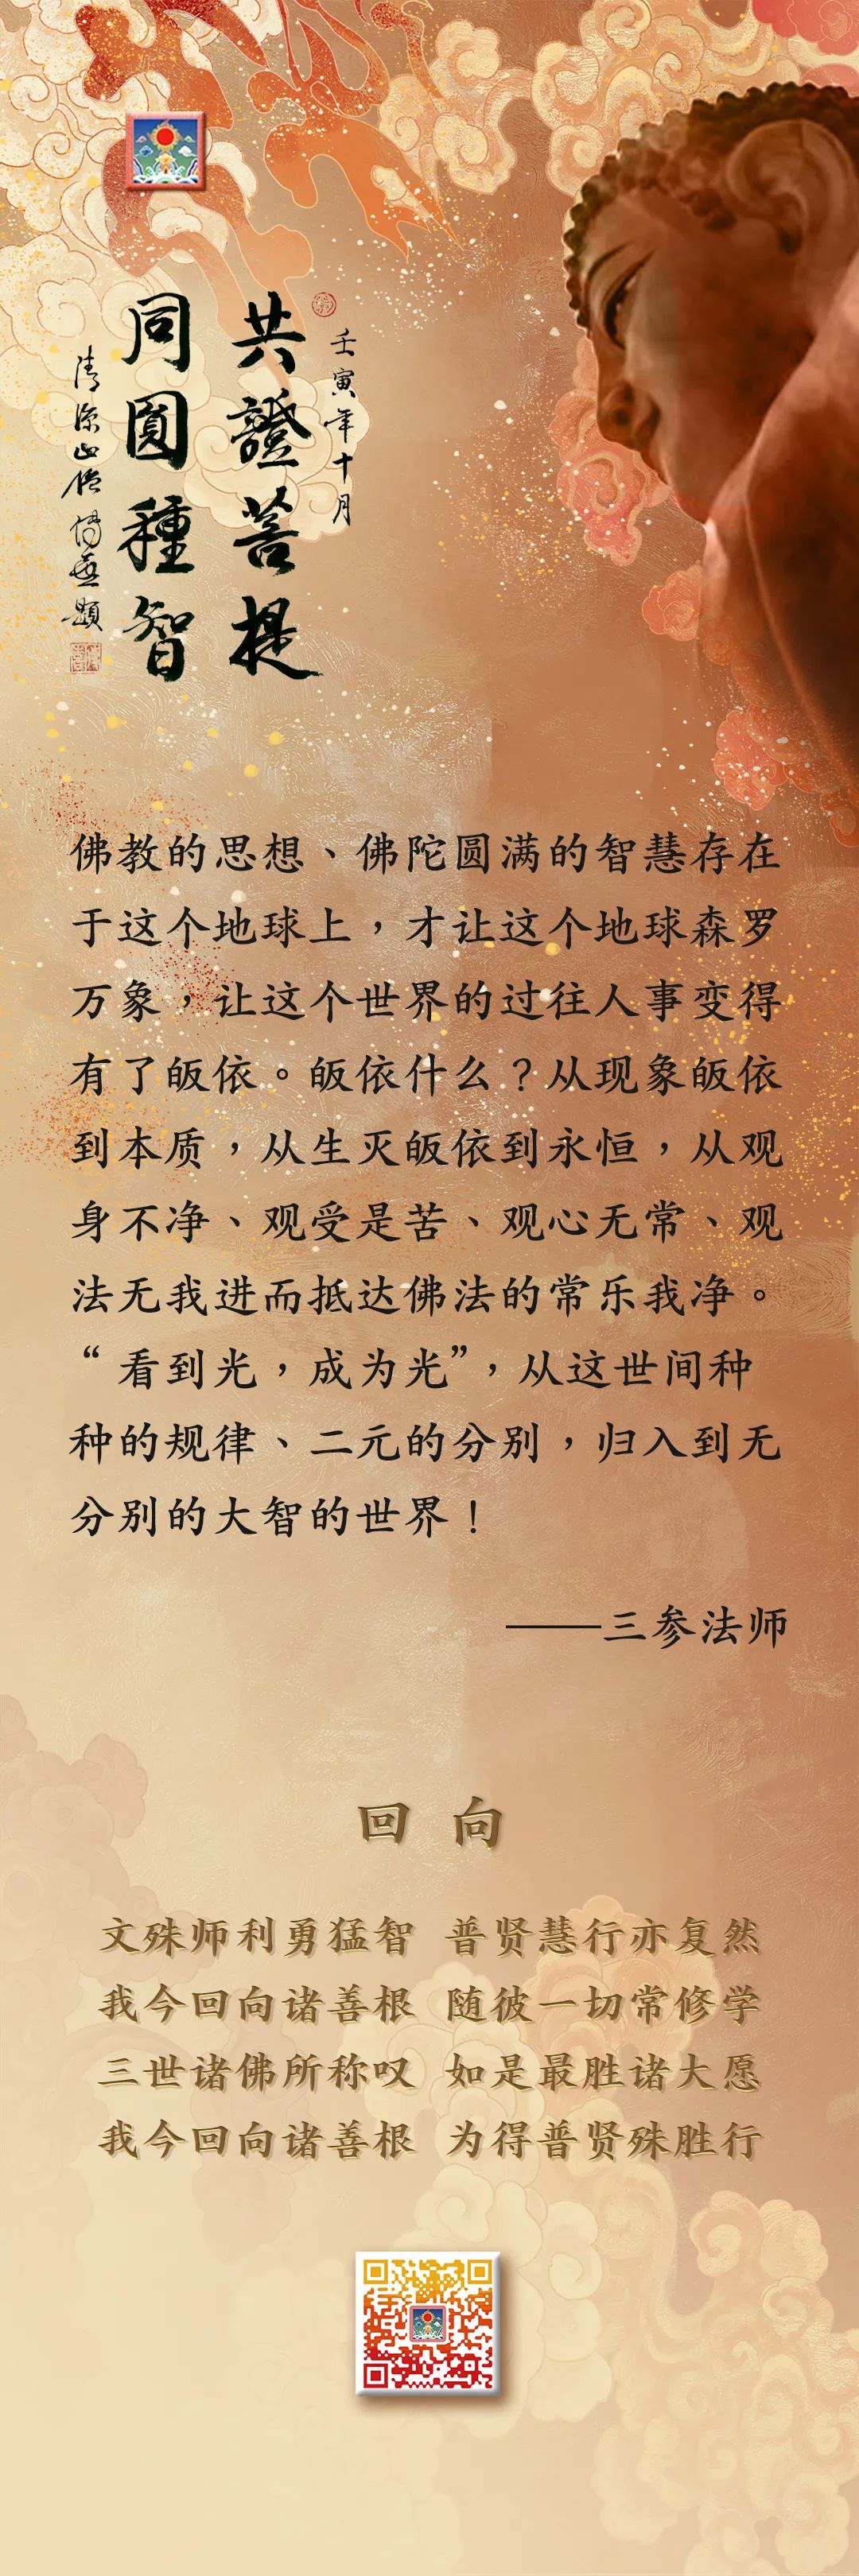 壬寅年十月
共證菩提
同圓種智
清源山僧傳無題
佛教的思想、佛陀圆满的智慧存在
于这个地球上，才让这个地球森罗
万象，让这个世界的过往人事变得
有了皈依。皈依什么？从现象皈依
到本质，从生灭皈依到永恒，从观
身不净、观受是苦、观心无常、观
法无我进而抵达佛法的常乐我净。
“看到光，成为光”，从这世间种
种的规律、二元的分别，归入到无
分别的大智的世界！
——三参法师
回 向
文殊师利勇猛智 普贤慧行亦复然
我今回向诸善根 随彼一切常修学
三世诸佛所称叹 如是最胜诸大愿
我今回向诸善根 为得普贤殊胜行